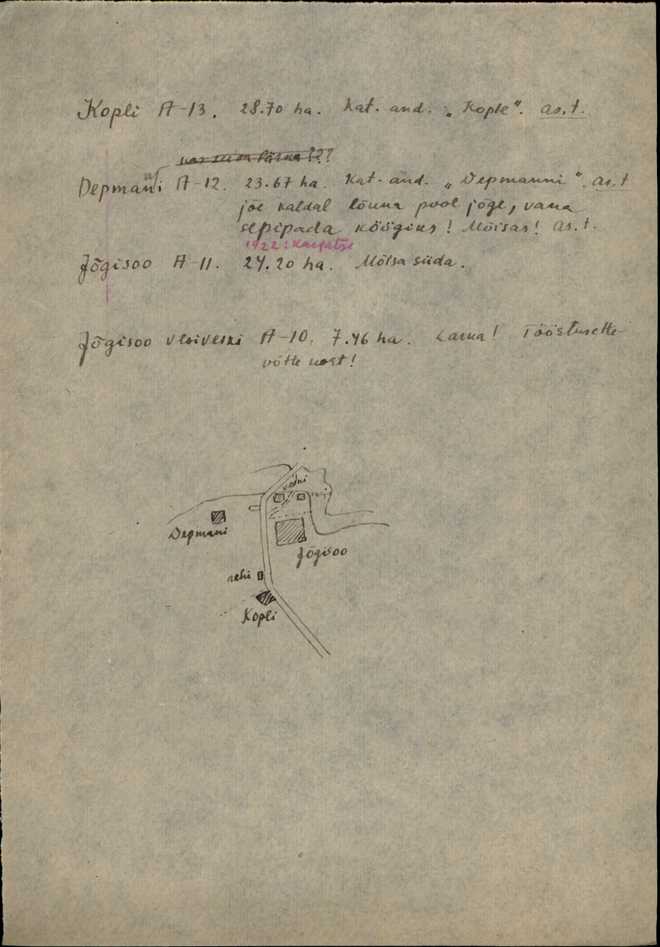 Kopli A-13. 28.70 ha. Kat. and. „Kople“. as.t.
Depmani A-12. 23.67 ha. Kat. and. „Depmanni“. as.t
jõe kaldal lõuna pool jõge, vana
sepipada köögiks! Mõisas! as.t.
1922:
Jõgisoo A-11. 24.20 ha. Mõisa süda.
Jõgisoo vesiveski A-10. 7.46 ha. Tööstusette
võtte
Depmani
Jõgisoo
rehi
Kopli